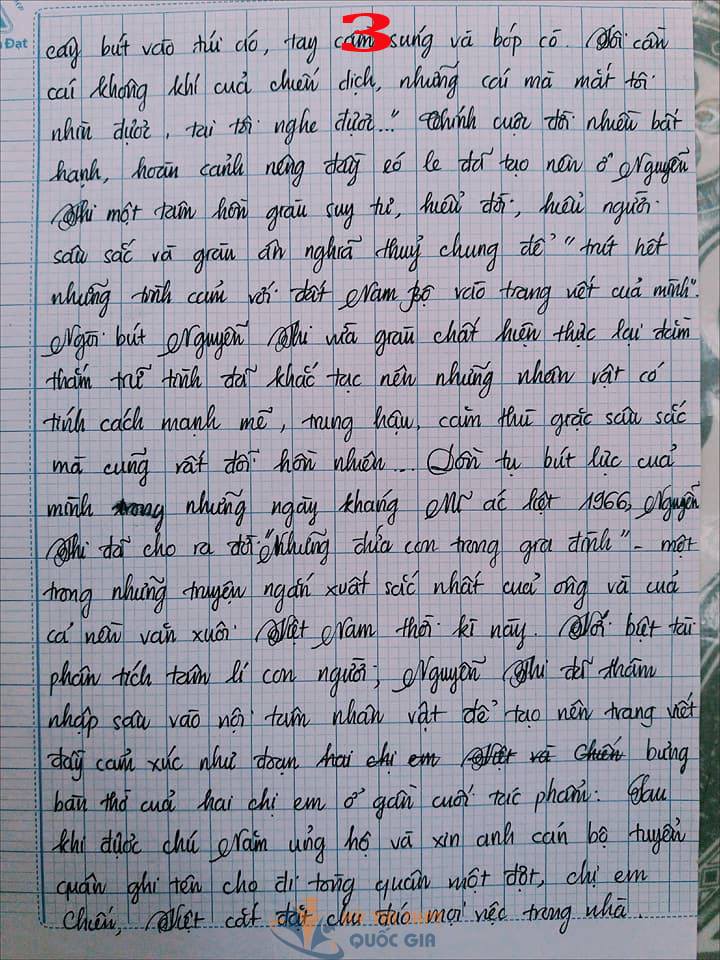 Đạt
3
cây bút vào túi áo, tay cầm súng và bóp cò. Tôi cần
cái không khí của chiến dịch, những cái mà mắt tôi
nhìn được, tai tôi nghe được..." Chính cuộc đời nhiều bất
hạnh, hoàn cảnh riêng đầy éo le đã tạo nên ở Nguyễn
Thi một tâm hồn giàu suy tư, hiểu đời, hiểu người
sâu sắc và giàu ân nghĩa thuỷ chung để "trút hết
những tình cảm với đất Nam Bộ vào trang viết của mình".
Ngòi bút Nguyễn Thi vừa giàu chất hiện thực lại đằm
thắm trữ tình đã khắc tạc nên những nhân vật có
tính cách mạnh mẽ, trung hậu, căm thù giặc sâu sắc
mà cũng rất đỗi hồn nhiên... Dồn tụ bút lực của
mình trong những ngày kháng Mĩ ác liệt 1966, Nguyễn
Thi đã cho ra đời "Những đứa con trong gia đình" - một
trong những truyện ngắn xuất sắc nhất của ông và của
cả nền văn xuôi Việt Nam thời kì này. Với biệt tài
phân tích tâm lí con người, Nguyễn Thi đã thâm
nhập sâu vào nội tâm nhân vật để tạo nên trang viết
đầy cảm xúc như đoạn hai chị em Việt và Chiến bưng
bàn thờ của hai chị em ở gần cuối tác phẩm: Sau
khi được chú Năm ủng hộ và xin anh cán bộ tuyển
quân ghi tên cho đi tòng quân một đợt, chị em
Chiến, Việt cắt đặt chu đáo mọi việc trong nhà.
QUỐC GIA